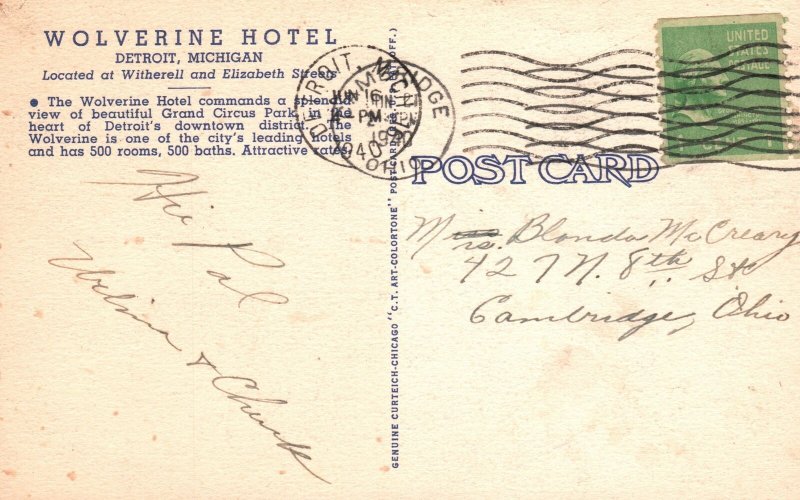 WOLVERINE HOTEL
DETROIT, MICHIGAN
Located at Witherell and Elizabeth Streets
● The Wolverine Hotel commands a splendid
view of beautiful Grand Circus Park, in the
heart of Detroit's downtown district. The
Wolverine is one of the city's leading hotels
and has 500 rooms, 500 baths. Attractive rates.
Hi Pal
Velma & Chuck
GENUINE CURTEICH-CHICAGO "C.T. ART-COLORTONE" POSTCARD
OFF.)
DETROIT, MICH.
JUN 16
PM
1940
UNITED
STATES
POSTAGE
1
POST CARD
Mrs. Blonda McCreary
427 N. 8th St
Cambridge, Ohio